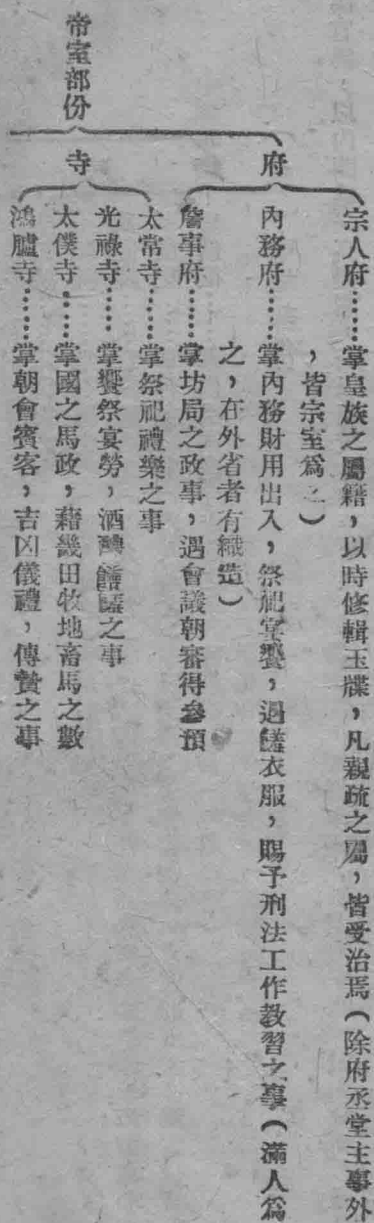 帝室部份
府
宗人府……掌皇族之屬籍，以時修輯玉牒，凡親疏之屬，皆受治焉（除府丞堂主事外
，皆宗室爲之）
內務府……掌內務財用出入，祭祀宴饗，膳衣服，賜予刑法工作教習之事（滿人爲
之，在外省者有織造）
詹事府……掌坊局之政事，遇會議朝審得參預
寺
太常寺……掌祭祀禮樂之事
光祿寺……掌饗祭宴勞，酒醴之事
太僕寺……掌國之馬政，藉畿田牧地畜馬之數
鴻臚寺……掌朝會賓客，吉凶儀禮，傳贊之事